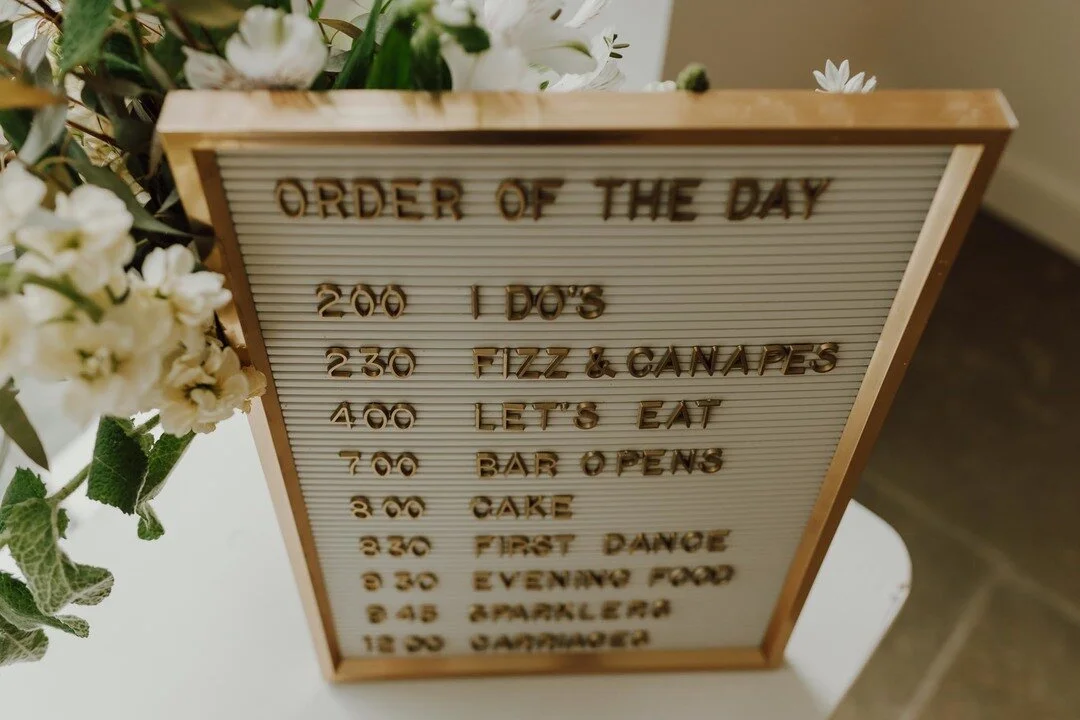 ORDER OF THE DAY
200 I DO'S
230 FIZZ & CANAPES
400 LET'S EAT
700 BAR OPENS
800 CAKE
830 FIRST DANCE
930 EVENING FOOD
945 SPARKLERS
1200 CARRIAGES